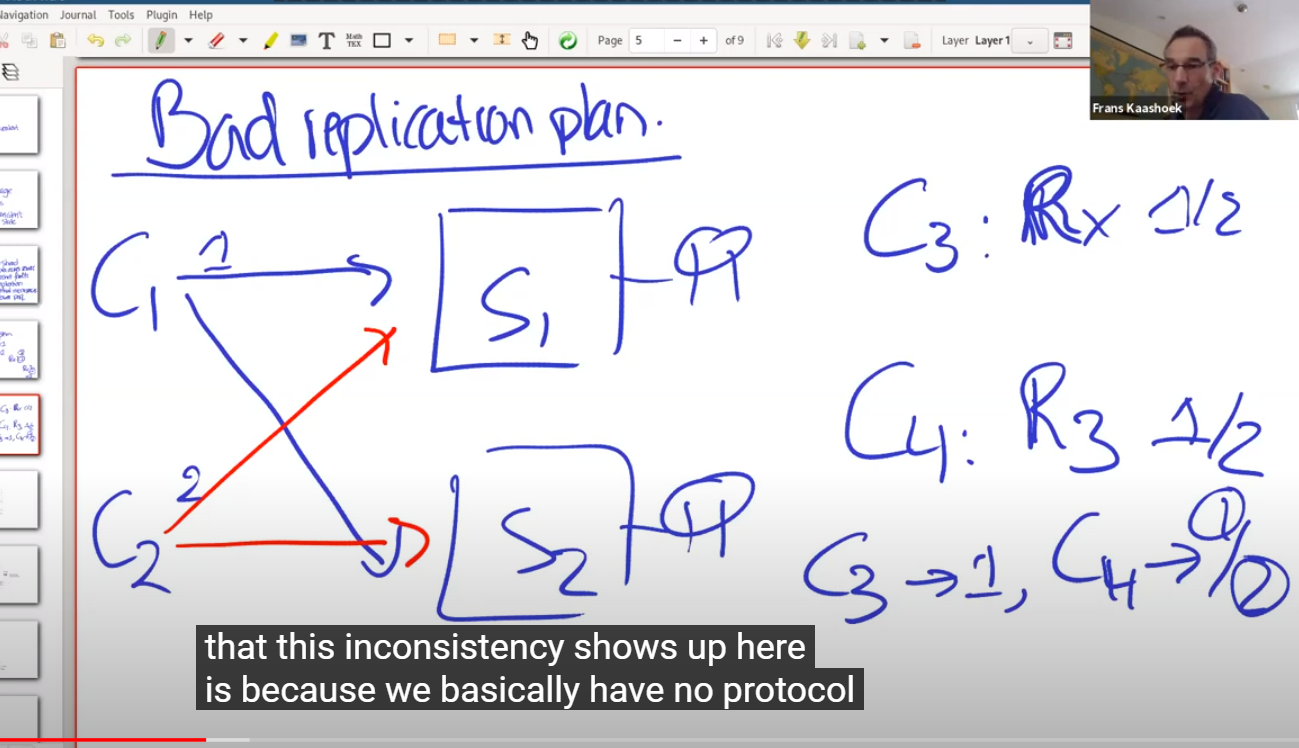 Navigation Journal Tools Plugin Help
T Math TEX Page 5 − + of 9 Layer Layer 1
Frans Kaashoek
Bad replication plan.
C1 1 S1
C3: Rx 1/2
C2 2 S2
C4: R3 1/2
C3 → 1, C4 → 1/2
that this inconsistency shows up here
is because we basically have no protocol